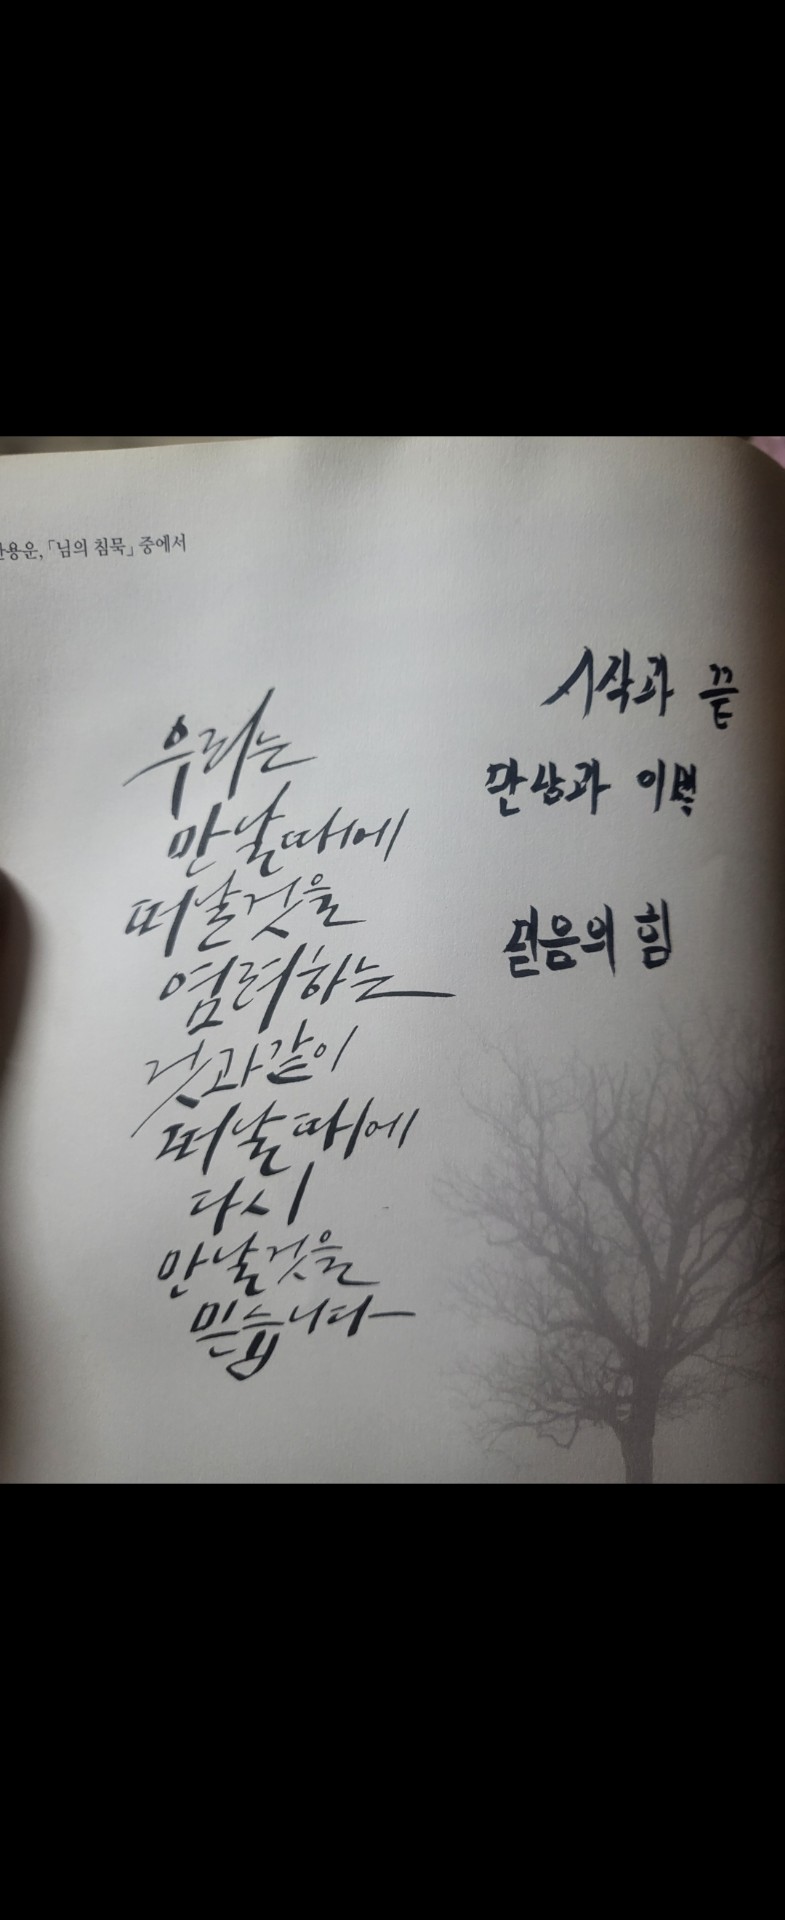 한용운, 「님의 침묵」 중에서
시작과 끝
만남과 이별
믿음의 힘
우리는
만날때에
떠날것을
염려하는
것과같이
떠날때에
다시
만날것을
믿습니다